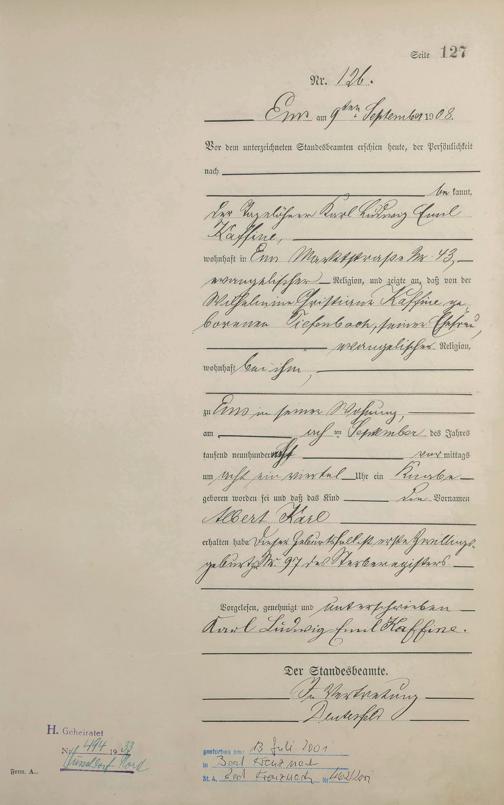 Seite 127
Nr. 126.
Ems am 9ten September 1908.
Vor dem unterzeichneten Standesbeamten erschien heute, der Persönlichkeit
nach
be kannt,
der Tagelöhner Karl Ludwig Emil
Kaffine,
wohnhaft in Ems Marktstraße Nr. 43,
evangelischer Religion, und zeigte an, daß von der
Wilhelmine Christiane Kaffine ge
borenen Tiefenbach, seiner Ehefrau,
evangelischer Religion,
wohnhaft bei ihm,
zu Ems in seiner Wohnung,
am ach ten September des Jahres
tausend neunhundert acht vor mittags
um acht ein viertel Uhr ein Knabe
geboren worden sei und daß das Kind die Vornamen
Albert Karl
erhalten habe. Dieser Geburtsfall ist erste Zwillings-
geburt, Nr. 97 des Sterberegisters
Vorgelesen, genehmigt und unterschrieben
Karl Ludwig Emil Kaffine.
Der Standesbeamte.
In Vertretung
H. Geheiratet
Nr. 494 1933
Düsseldorf Nord
Form. A.
gestorben am: 13 Juli 2001
in Bad Kreuznach
St. A. Bad Kreuznach Nr.